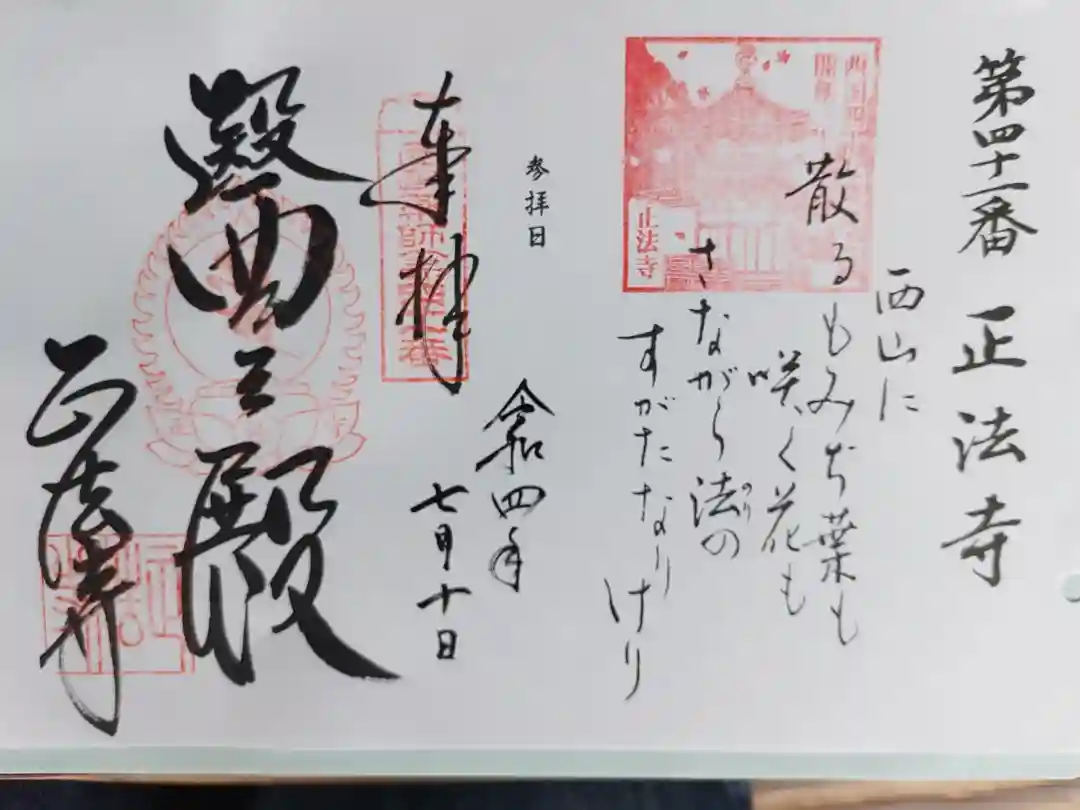 第四十一番 正法寺
西山に
散るもみぢ葉も
咲く花も
さながら法の
のり
すがたなりけり
正法寺
参拝日
奉拝
令和四年
七月十日
醫王殿
正法寺